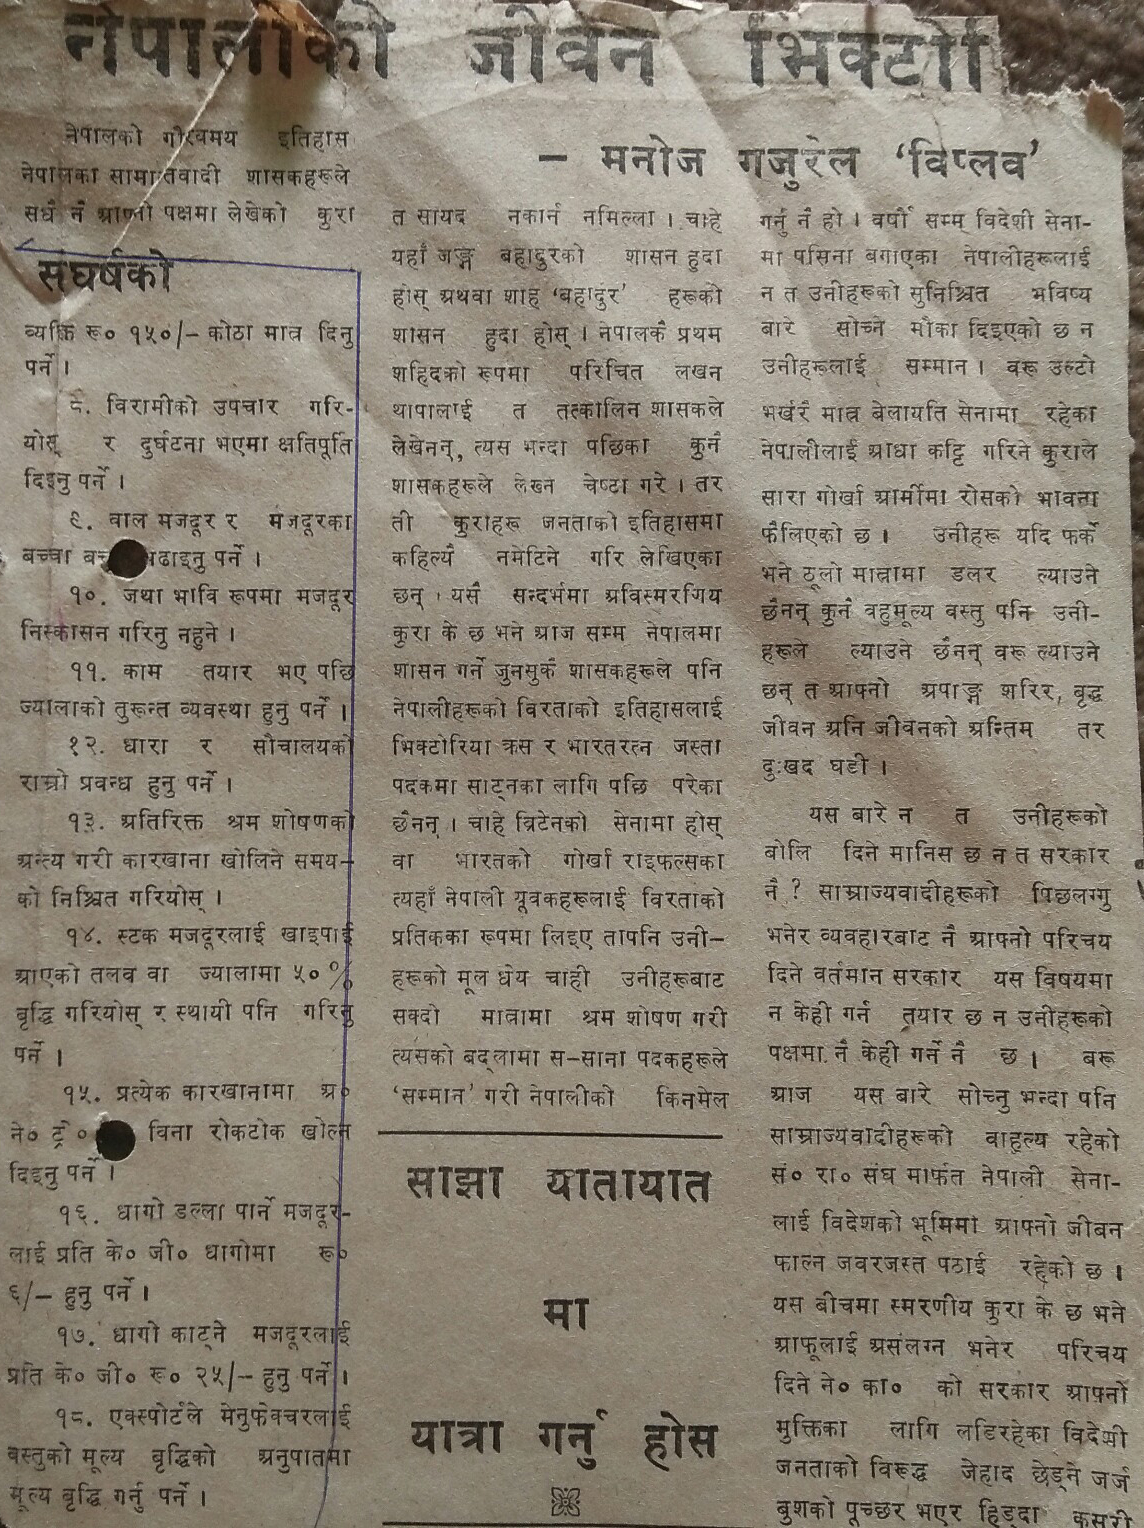 नेपालीको जीवन भिक्टो
– मनोज गजुरेल ‘विप्लव’
नेपालको गौरवमय इतिहास
नेपालका सामान्तवादी शासकहरूले
सधैं नै आफ्नो पक्षमा लेखेको कुरा
त सायद नकार्न नमिल्ला । चाहे
यहाँ जङ्ग बहादुरको शासन हुदा
होस् अथवा शाह ‘बहादुर’ हरूको
शासन हुदा होस् । नेपालकै प्रथम
शहिदको रूपमा परिचित लखन
थापालाई त तत्कालिन शासकले
लेखेनन्, त्यस भन्दा पछिका कुनै
शासकहरूले लेख्न चेष्टा गरे । तर
ती कुराहरू जनताको इतिहासमा
कहिल्यै नमेटिने गरि लेखिएका
छन् । यसै सन्दर्भमा अविस्मरणिय
कुरा के छ भने आज सम्म नेपालमा
शासन गर्ने जुनसुकै शासकहरूले पनि
नेपालीहरूको विरताको इतिहासलाई
भिक्टोरिया क्रस र भारतरत्न जस्ता
पदकमा साट्नका लागि पछि परेका
छैनन् । चाहे ब्रिटेनको सेनामा होस्
वा भारतको गोर्खा राइफल्सका
त्यहाँ नेपाली यूवकहरूलाई विरताको
प्रतिकका रूपमा लिइए तापनि उनी–
हरूको मूल धेय चाही उनीहरूबाट
सक्दो मात्रामा श्रम शोषण गरी
त्यसको बद्लामा स–साना पदकहरूले
‘सम्मान’ गरी नेपालीको किनमेल
गर्नु नै हो । वर्षौं सम्म् विदेशी सेना-
मा पसिना बगाएका नेपालीहरूलाई
न त उनीहरूको सुनिश्चित भविष्य
बारे सोच्ने मौका दिइएको छ न
उनीहरूलाई सम्मान । वरू उल्टो
भर्खरै मात्र बेलायति सेनामा रहेका
नेपालीलाई आधा कट्टि गरिने कुराले
सारा गोर्खा आर्मीमा रोसको भावना
फैलिएको छ । उनीहरू यदि फर्के
भने ठूलो मात्रामा डलर ल्याउने
छैनन् कुनै वहुमूल्य वस्तु पनि उनी-
हरूले ल्याउने छैनन् वरू ल्याउने
छन् त आफ्नो अपाङ्ग शरिर, वृद्ध
जीवन अनि जीवनको अन्तिम तर
दुःखद घडी ।
यस बारे न त उनीहरूको
बोलि दिने मानिस छ न त सरकार
नै ? साम्राज्यवादीहरूको पिछलग्गु
भनेर व्यवहारबाट नै आफ्नो परिचय
दिने वर्तमान सरकार यस विषयमा
न केही गर्न तयार छ न उनीहरूको
पक्षमा नै केही गर्ने नै छ । बरू
आज यस बारे सोच्नु भन्दा पनि
साम्राज्यवादीहरूको वाहुल्य रहेको
सं० रा० संघ मार्फत नेपाली सेना-
लाई विदेशको भूमिमा आफ्नो जीबन
फाल्न जवरजस्त पठाई रहेको छ ।
यस बीचमा स्मरणीय कुरा के छ भने
आफूलाई असंलग्न भनेर परिचय
दिने ने० का० को सरकार आफ्नो
मुक्तिका लागि लडिरहेका विदेशी
जनताको विरूद्ध जेहाद छेड्ने जर्ज
बुशको पूच्छर भएर हिड्दा कसरी
संघर्षको
व्यक्ति रू० १५०/– कोठा मात्र दिनु
पर्ने ।
८. विरामीको उपचार गरि-
योस् र दुर्घटना भएमा क्षतिपूर्ति
दिइनु पर्ने ।
९. वाल मजदूर र मजदूरका
बच्चा पढाइनु पर्ने ।
१०. जथा भावि रूपमा मजदूर
निस्कासन गरिनु नहुने ।
११. काम तयार भए पछि
ज्यालाको तुरून्त व्यवस्था हुनु पर्ने ।
१२. धारा र सौचालयको
राम्रो प्रवन्ध हुनु पर्ने ।
१३. अतिरिक्त श्रम शोषणको
अन्त्य गरी कारखाना खोलिने समय–
को निश्चित गरियोस् ।
१४. स्टक मजदूरलाई खाइपाई
आएको तलव वा ज्यालामा ५०%
बृद्धि गरियोस् र स्थायी पनि गरिनु
पर्ने ।
१५. प्रत्येक कारखानामा अ०
ने० ट्रे० विना रोकटोक खोल्न
दिइनु पर्ने ।
१६. धागो डल्ला पार्ने मजदूर-
लाई प्रति के० जी० धागोमा रू०
६/– हुनु पर्ने ।
१७. धागो काट्ने मजदूरलाई
प्रति के० जी० रू० २५/– हुनु पर्ने ।
१८. एक्स्पोर्टले मेनुफेक्चरलाई
वस्तुको मूल्य वृद्धिको अनुपातमा
मूल्य बृद्धि गर्नु पर्ने ।
साझा यातायात
मा
यात्रा गर्नु होस